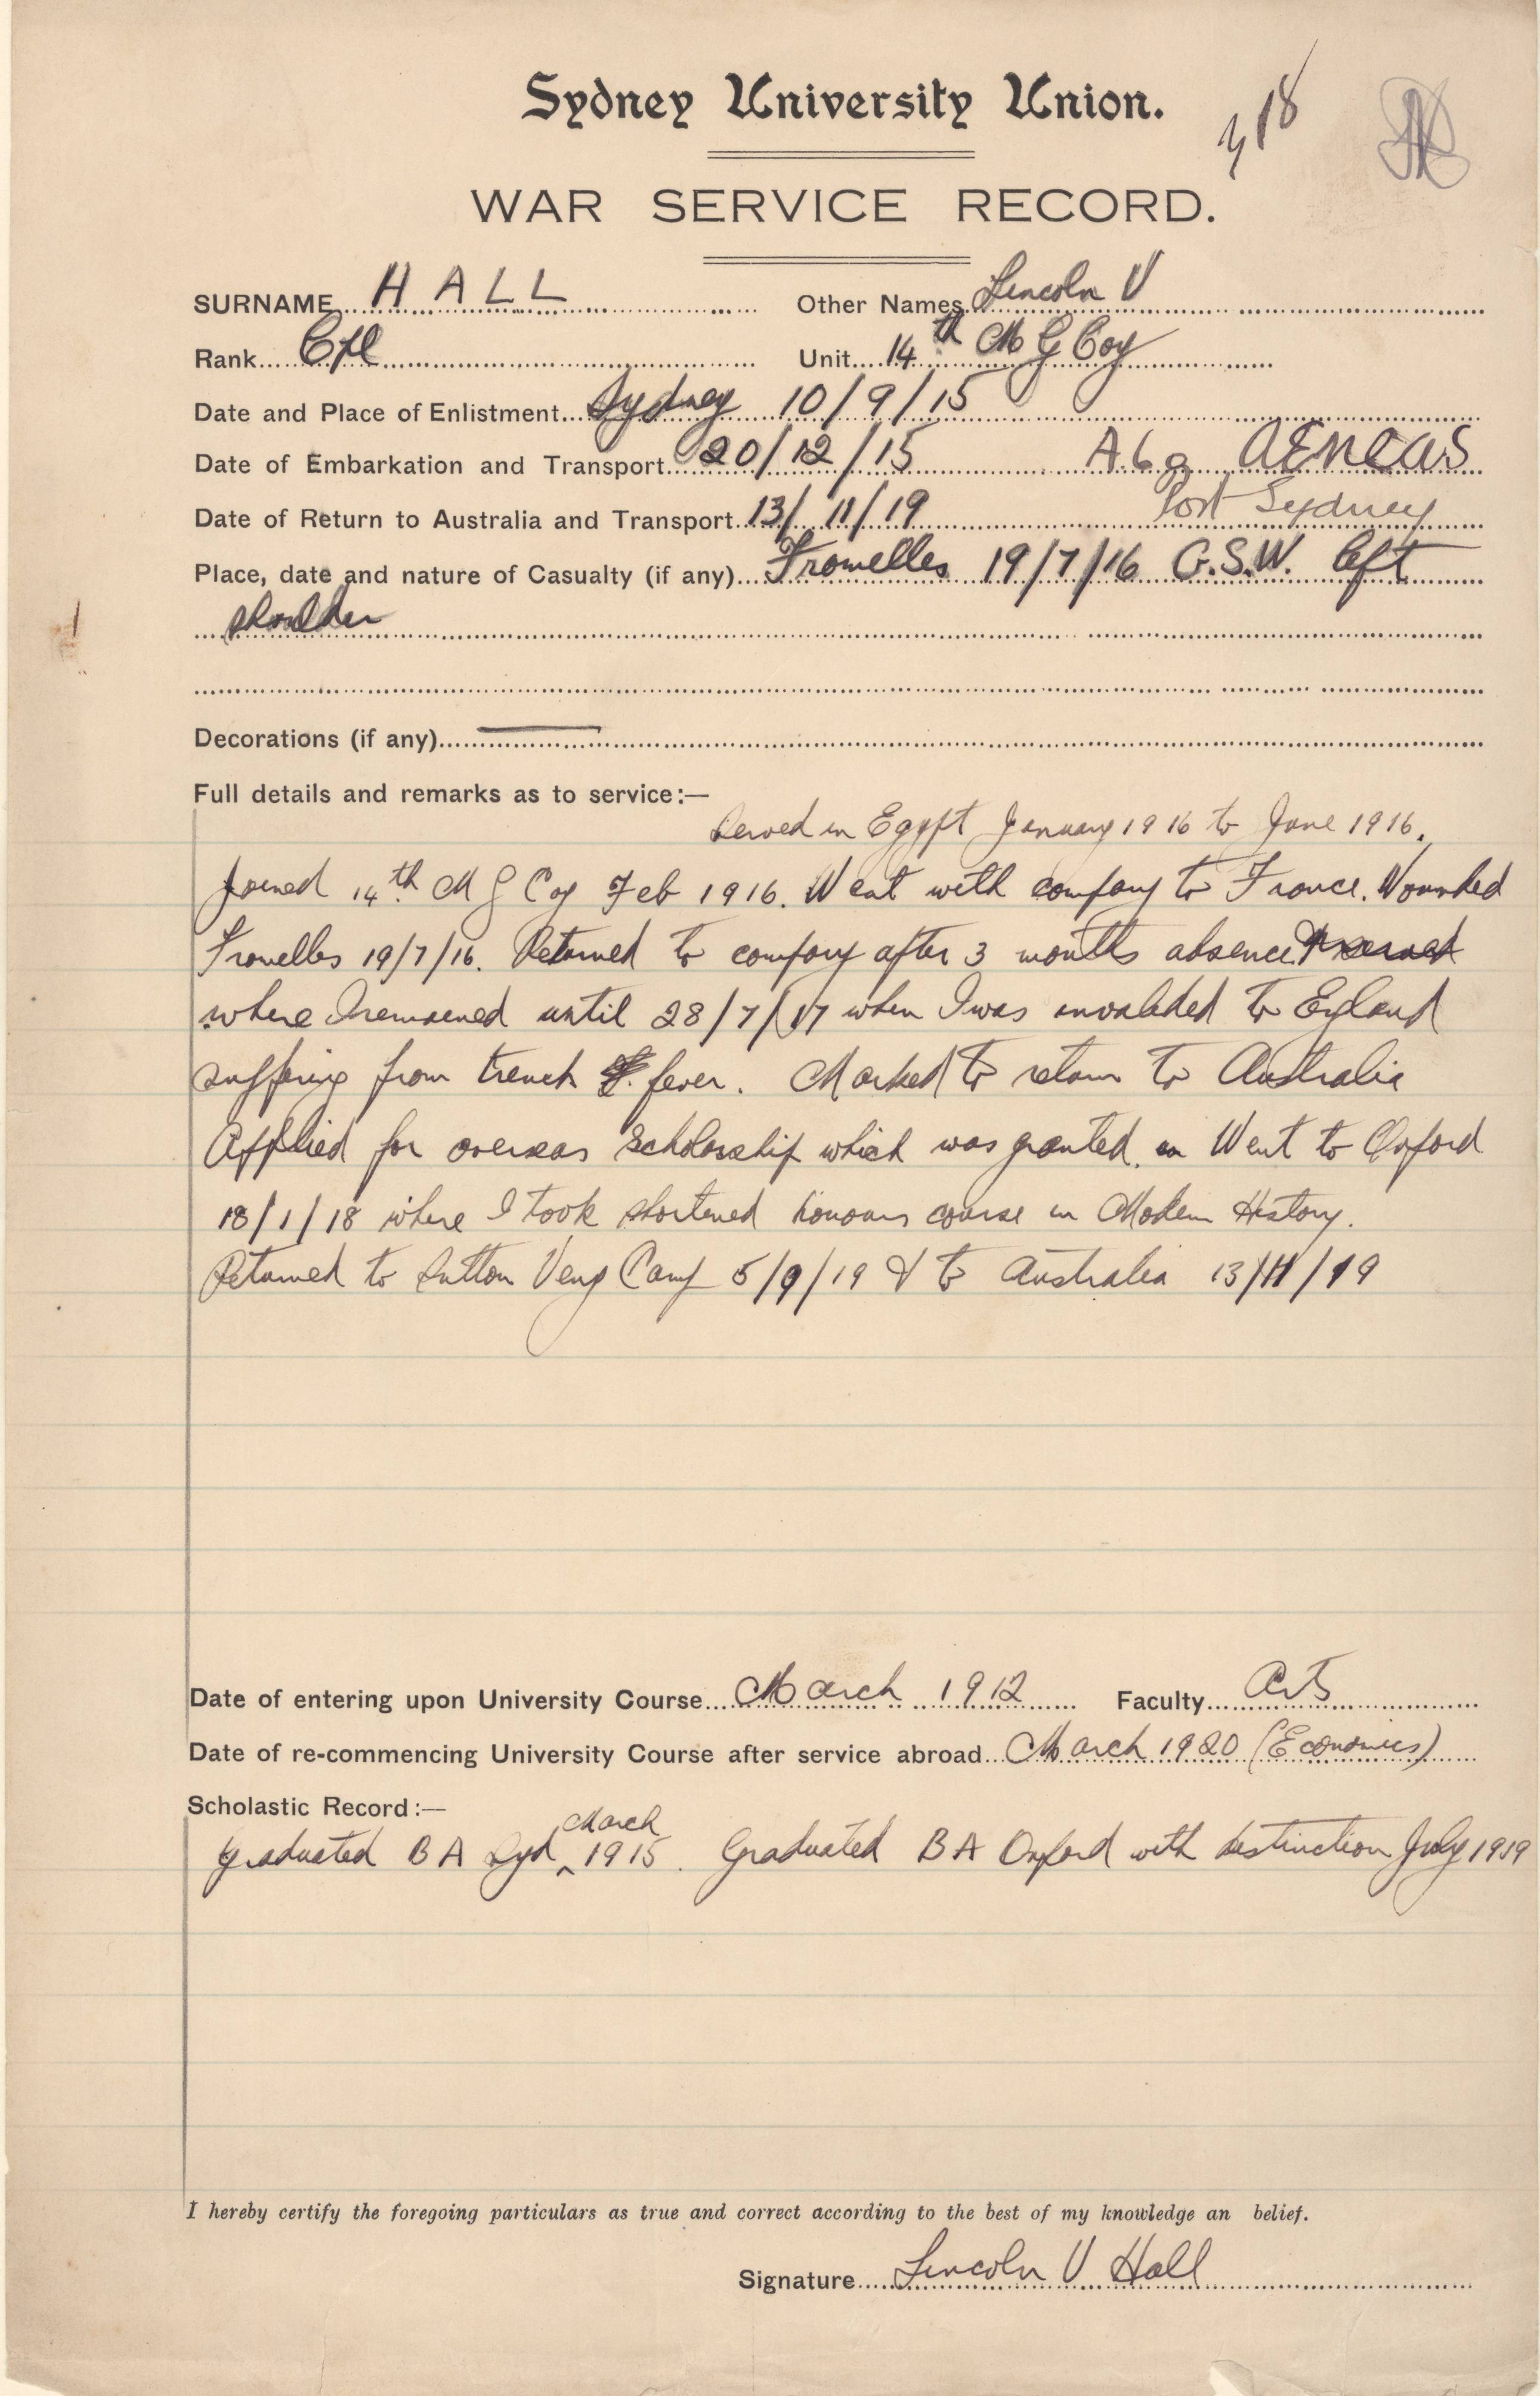 Sydney University Union.
318
WAR SERVICE RECORD.
SURNAME HALL Other Names Lincoln V
Rank Cpl Unit 14th M G Coy
Date and Place of Enlistment Sydney 10/9/15
Date of Embarkation and Transport 20/12/15 A60 AENEAS
Date of Return to Australia and Transport 13/11/19 Port Sydney
Place, date and nature of Casualty (if any) Fromelles 19/7/16 G.S.W. left
shoulder
Decorations (if any) —
Full details and remarks as to service:—
Served in Egypt January 1916 to June 1916.
Joined 14th M G Coy Feb 1916. Went with company to France. Wounded
Fromelles 19/7/16. Returned to company after 3 months absence
where I remained until 28/7/17 when I was invalided to England
suffering from trench fever. Marked to return to Australia
Applied for overseas scholarship which was granted. Went to Oxford
18/1/18 where I took shortened honours course in Modern History.
Returned to Sutton Veny Camp 5/9/19 & to Australia 13/11/19
Date of entering upon University Course March 1912 Faculty Arts
Date of re-commencing University Course after service abroad March 1920 (Economics)
Scholastic Record:—
Graduated B A Syd March 1915. Graduated B A Oxford with distinction July 1919
I hereby certify the foregoing particulars as true and correct according to the best of my knowledge an belief.
Signature Lincoln V Hall